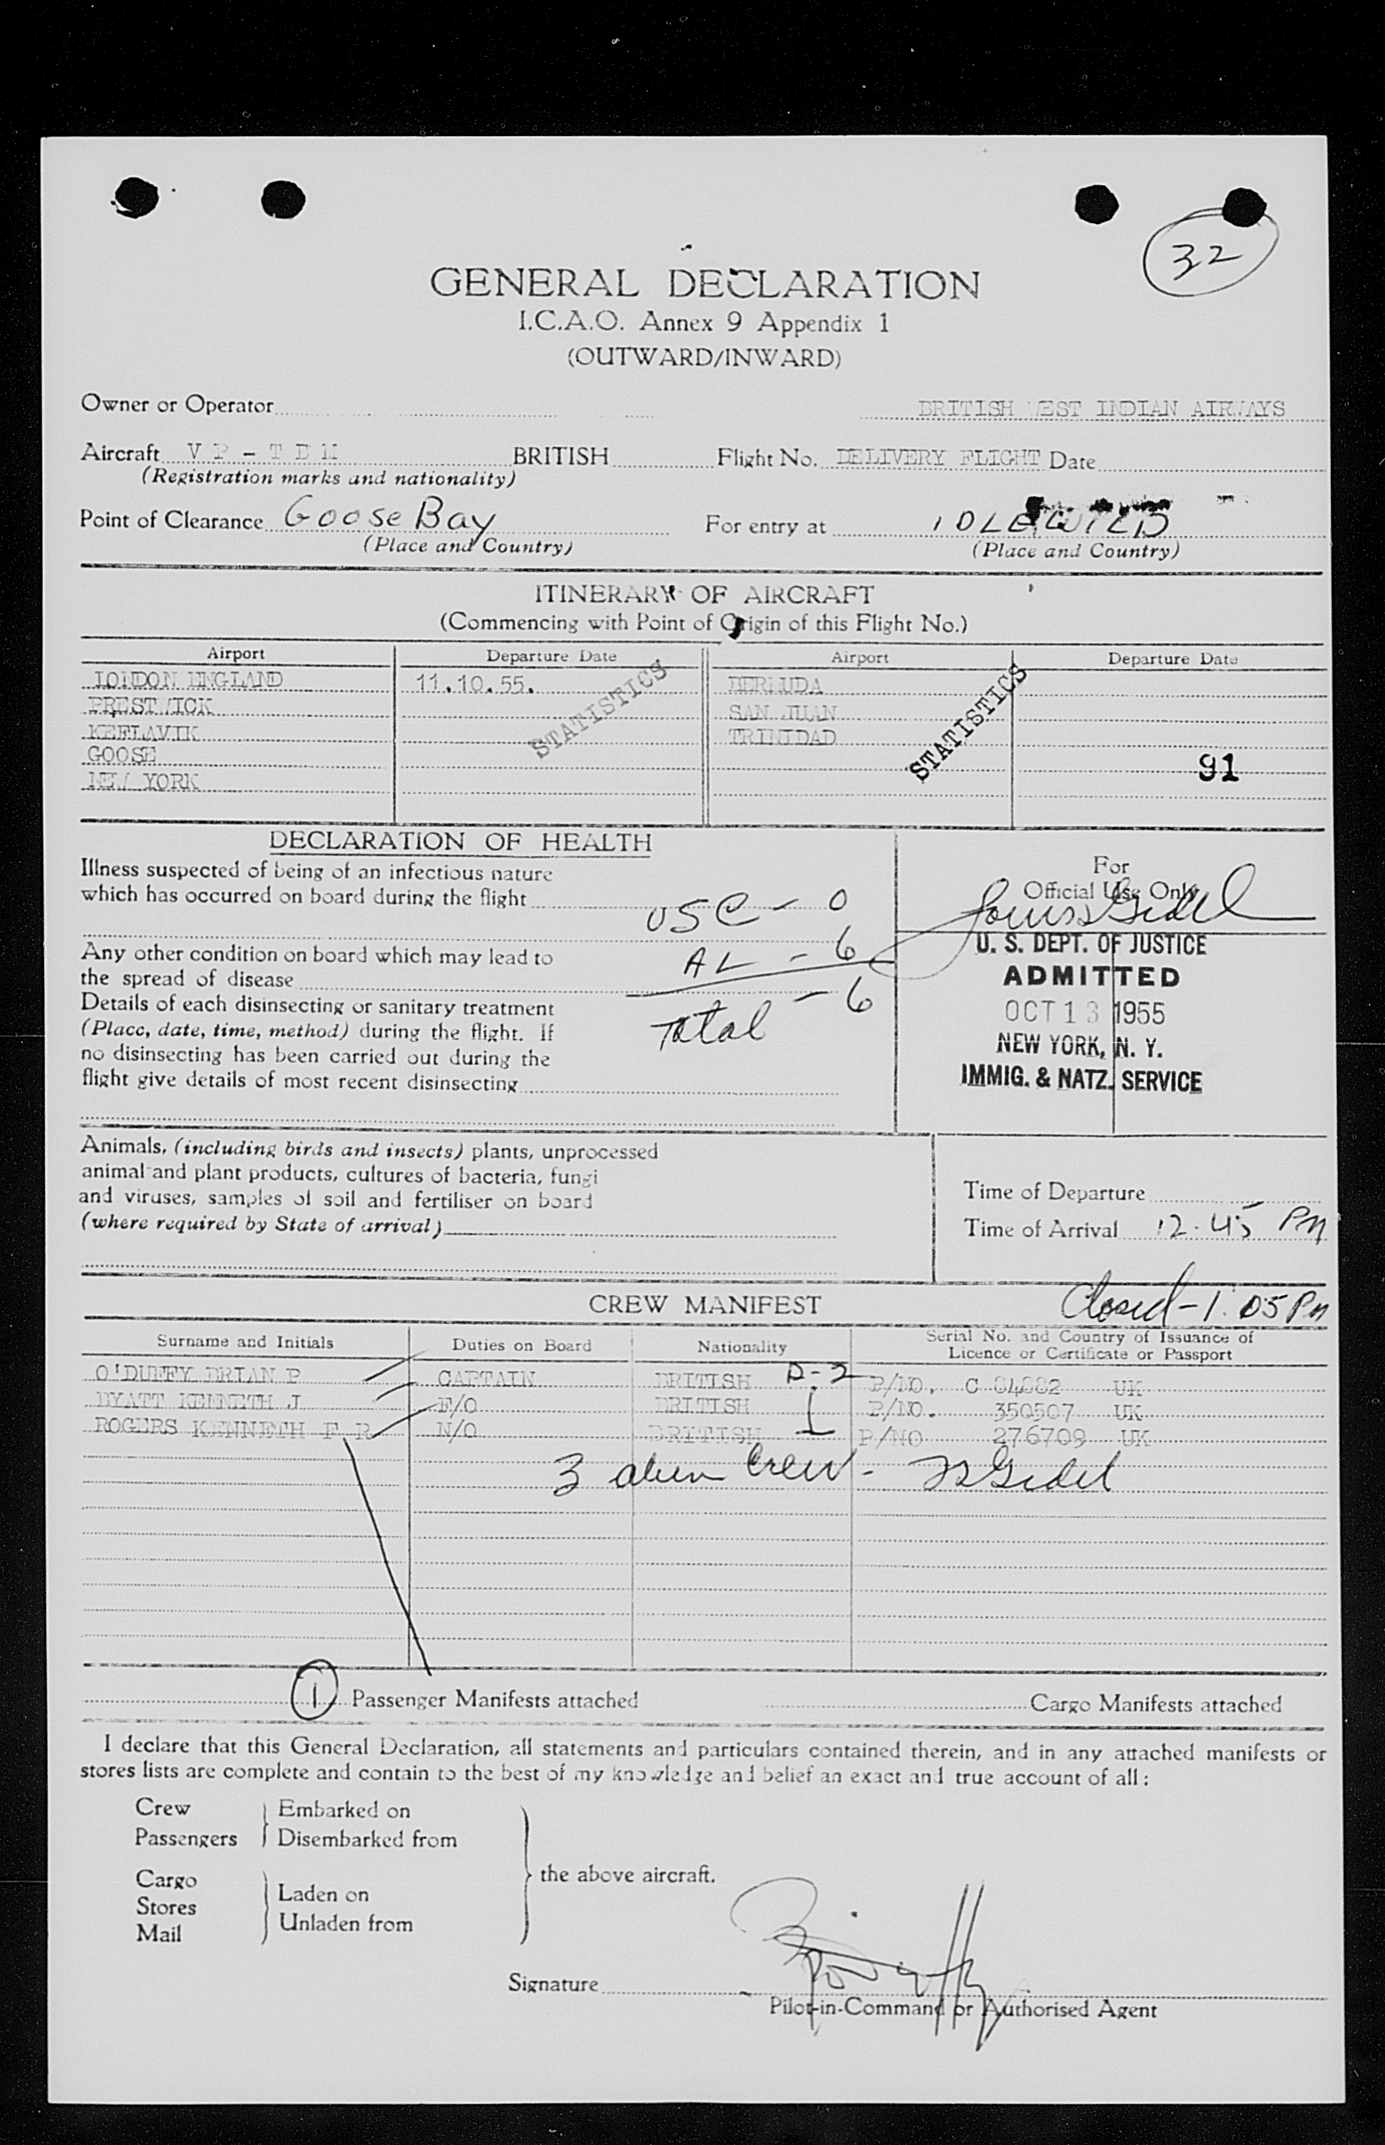 32
GENERAL DECLARATION
I.C.A.O. Annex 9 Appendix 1
(OUTWARD/INWARD)
Owner or Operator BRITISH WEST INDIAN AIRWAYS
Aircraft V P - T D M BRITISH Flight No. DELIVERY FLIGHT Date
(Registration marks and nationality)
Point of Clearance Goose Bay For entry at IDLEWILD
(Place and Country) (Place and Country)
ITINERARY OF AIRCRAFT
(Commencing with Point of Origin of this Flight No.)
Airport Departure Date Airport Departure Date
LONDON ENGLAND 11.10.55. BERMUDA
PRESTWICK SAN JUAN
KEFLAVIK TRINIDAD
GOOSE
NEW YORK
STATISTICS STATISTICS 91
DECLARATION OF HEALTH
Illness suspected of being of an infectious nature
which has occurred on board during the flight
USC - 0
Any other condition on board which may lead to
the spread of disease
AL - 6
Details of each disinsecting or sanitary treatment
(Place, date, time, method) during the flight. If
no disinsecting has been carried out during the
flight give details of most recent disinsecting
Total - 6
For
Official Use Only
U. S. DEPT. OF JUSTICE
ADMITTED
OCT 13 1955
NEW YORK, N. Y.
IMMIG. & NATZ. SERVICE
Animals, (including birds and insects) plants, unprocessed
animal and plant products, cultures of bacteria, fungi
and viruses, samples of soil and fertiliser on board
(where required by State of arrival)
Time of Departure
Time of Arrival 12.45 PM
Closed - 1:05 PM
CREW MANIFEST
Surname and Initials Duties on Board Nationality Serial No. and Country of Issuance of
Licence or Certificate or Passport
O'DUFFY BRIAN P CAPTAIN BRITISH D-2 P/NO. C 84882 UK
HYATT KENNETH J F/O BRITISH P/NO. 350507 UK
ROGERS KENNETH F R N/O BRITISH P/NO 276709 UK
3 alien Crew -
1 Passenger Manifests attached Cargo Manifests attached
I declare that this General Declaration, all statements and particulars contained therein, and in any attached manifests or
stores lists are complete and contain to the best of my knowledge and belief an exact and true account of all:
Crew Embarked on
Passengers Disembarked from
the above aircraft.
Cargo
Stores Laden on
Mail Unladen from
Signature
Pilot-in-Command or Authorised Agent